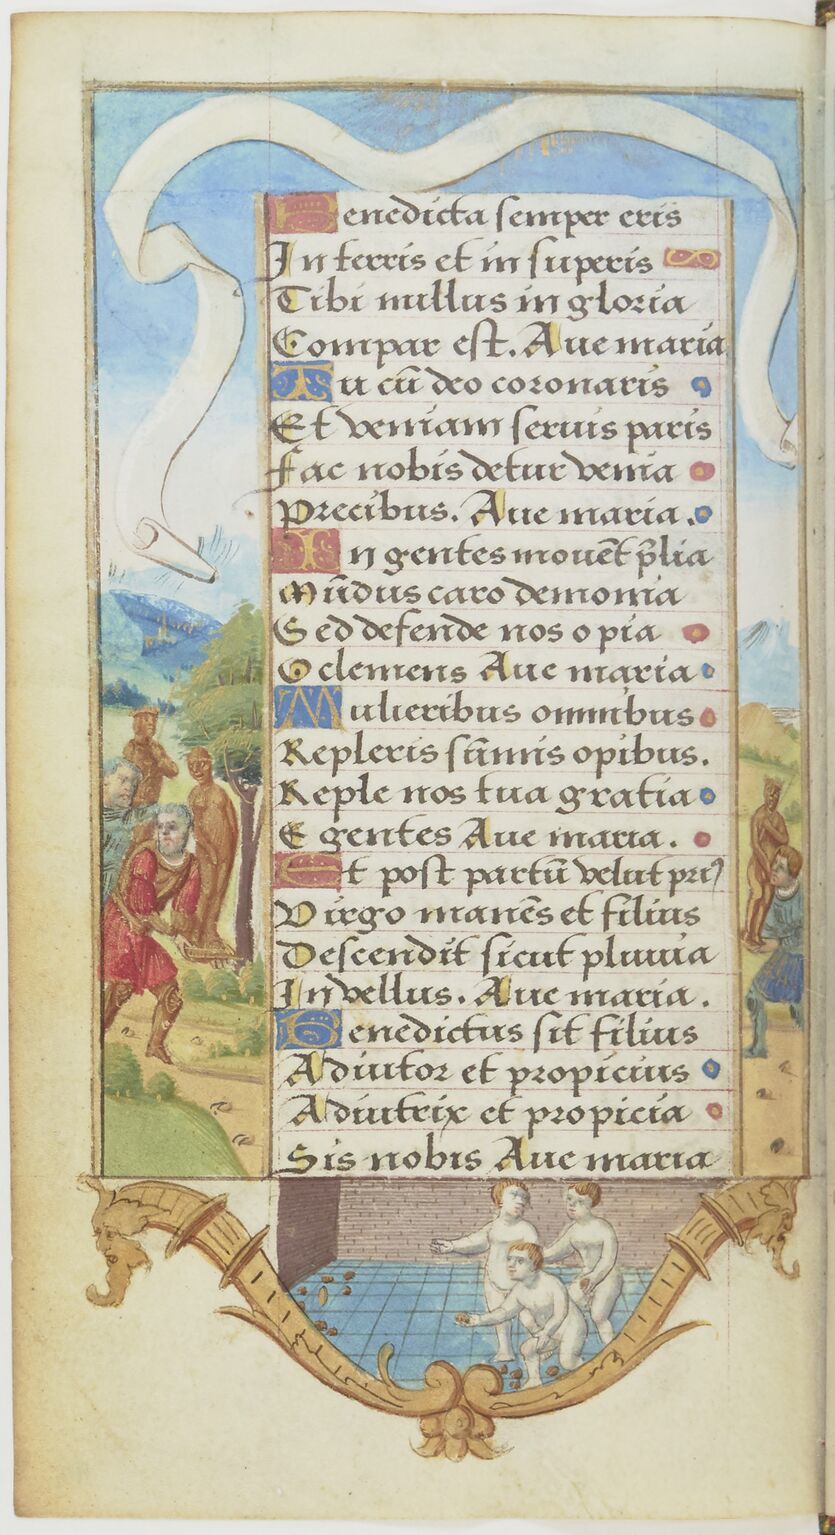 Benedicta semper eris
In terris et in superis
Tibi nullus in gloria
Compar est. Aue maria
Tu cũ deo coronaris
Et veniam seruis paris
Fac nobis detur venia
Precibus. Aue maria.
In gentes mouẽt p̃lia
Mũdus caro demonia
Sed defende nos o pia
O clemens Aue maria
Mulieribus omnibus
Repleris sũmis opibus.
Reple nos tua gratia
Egentes Aue maria.
Et post partũ velut priꝰ
Virgo manẽs et filius
Descendit sicut pluuia
In vellus. Aue maria.
Benedictus sit filius
Adiutor et propicius
Adiutrix et propicia
Sis nobis Aue maria